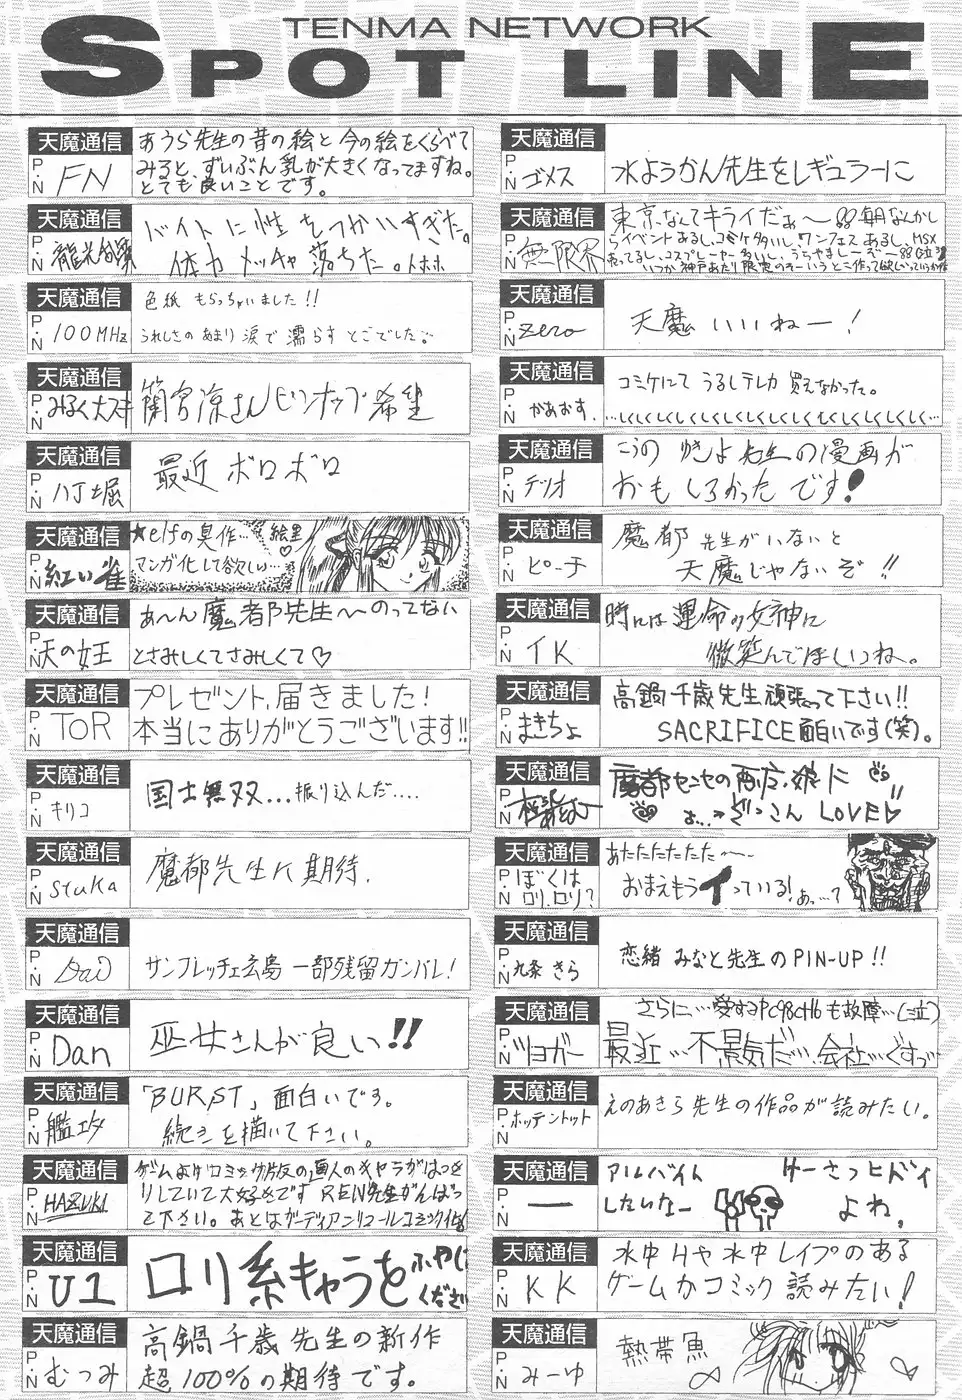 TENMA NETWORK
SPOT LINE
天魔通信
P.N FN
あうら先生の昔の絵と今の絵をくらべて
みると、ずいぶん乳が大きくなってますね。
とても良いことです。
天魔通信
P.N
バイトに性をつかいすぎた。
体力メッチャ落ちた。トホホ
天魔通信
P.N 100MHz
色紙もらっちゃいました!!
うれしさのあまり涙で濡らすとこでした。
天魔通信
P.N みるく大スキ
蘭宮涼さんピンナップ希望
天魔通信
P.N 八丁堀
最近ボロボロ
天魔通信
P.N 紅い雀
★elfの臭作…
マンガ化して欲しい…
絵里♡
天魔通信
P.N 天の女王
あ〜ん魔都先生〜〜のってない
とさみしくてさみしくて♡
天魔通信
P.N TOR
プレゼント、届きました!
本当にありがとうございます!!
天魔通信
P.N キリコ
国士無双...振り込んだ....
天魔通信
P.N stuka
魔都先生に期待.
天魔通信
P.N DaD
サンフレッチェ広島 一部残留ガンバレ!
天魔通信
P.N Dan
巫女さんが良い!!
天魔通信
P.N
「BURST」面白いです。
続きを描いて下さい。
天魔通信
P.N HAZUKI
ゲームよりコミック版の直人のキャラがはっき
りしていて大好きです REN先生がんばっ
て下さい。あとはガーディアンリコールコミック化
天魔通信
P.N U1
ロリ系キャラをふやして
ください
天魔通信
P.N むつみ
高鍋千歳先生の新作
超100%の期待です。
天魔通信
P.N ゴメス
水ようかん先生をレギュラーに
天魔通信
P.N 無限界
東京なんてキライだぁ〜 毎月なんかし
らイベントあるし、コミケ多いし、ワンフェスあるし、MSX
売ってるし、コスプレーヤー多いし、うらやましーぞー
いつか神戸あたり限定のそーいうとこ作って欲しい
天魔通信
P.N zero
天魔いいねー!
天魔通信
P.N かあおす.
コミケにて うるしテレカ 買えなかった。
…しくしくしくしくしくしくしくしくしくしくしく…
天魔通信
P.N テリオ
こうのゆきよ先生の漫画が
おもしろかったです!
天魔通信
P.N ピーチ
魔都先生がいないと
天魔じゃないぞ!!
天魔通信
P.N イK
時には運命の女神に
微笑んでほしいね。
天魔通信
P.N まきちょ
高鍋千歳先生頑張って下さい!!
SACRIFICE面白いです(笑)。
天魔通信
P.N
魔都センセの
ぞっこん LOVE♡
天魔通信
P.N ぼくは
ロリ.ロリ?
あたたたたたた〜〜
おまえもうイっている! あぁ…って
天魔通信
P.N 九条きら
恋緒みなと先生のPIN-UP!!
天魔通信
P.N ツヨガー
さらに…愛するPC98CH6も故障…(泣)
最近…不景気だ…会社…ぐすっ
天魔通信
P.N ホッテントット
えのあきら先生の作品が読みたい。
天魔通信
P.N 一
アルバイト
したいなー
けーさつヒドイ
よね。
天魔通信
P.N KK
水中Hや水中レイプのある
ゲームかコミック読みたい!
天魔通信
P.N みーゆ
熱帯魚